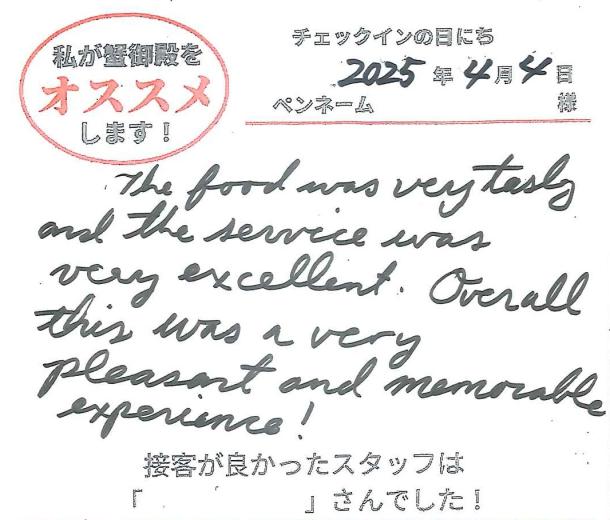 私が蟹御殿を
オススメ
します！
チェックインの日にち
2025 年 4 月 4 日
ペンネーム 様
The food was very tasty
and the service was
very excellent. Overall
this was a very
pleasant and memorable
experience!
接客が良かったスタッフは
「 」さんでした！